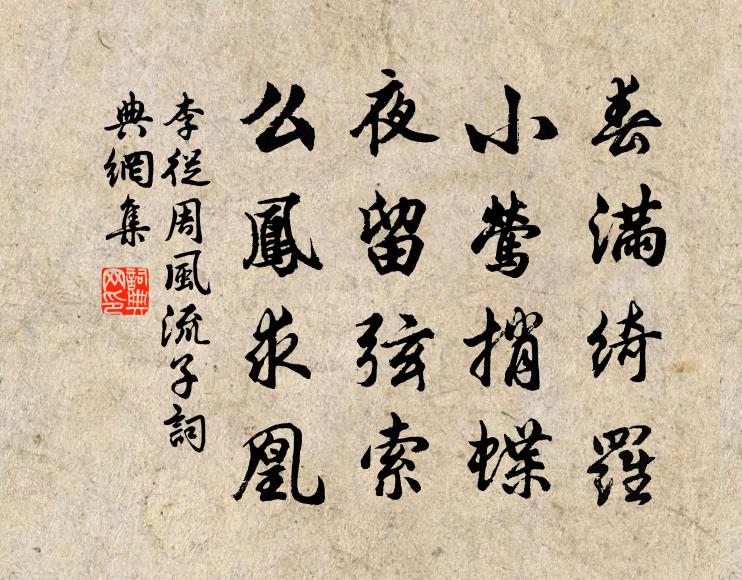 春滿綺羅
小鶯捎蝶
夜留弦索
么鳳求凰
李從周風流子詞
典網集
詞典網印